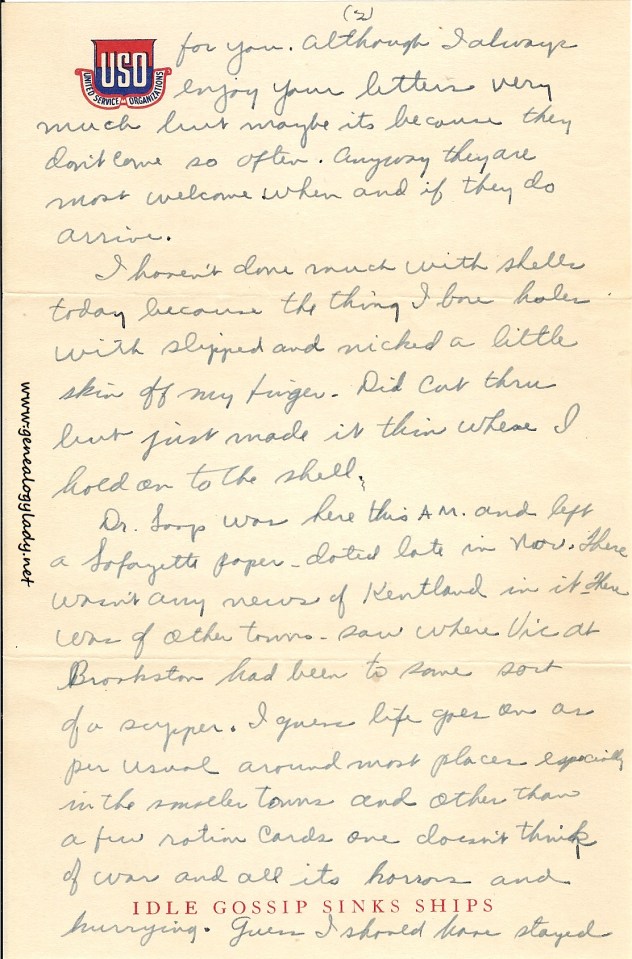 (2)
USO
UNITED SERVICE ORGANIZATIONS
for you. Although I always
enjoy your letters very
much but maybe its because they
don't come so often. Anyway they are
most welcome when and if they do
arrive.
I haven't done much with shells
today because the thing I bore holes
with slipped and nicked a little
skin off my finger. Did cut thru
but just made it thin where I
hold on to the shell.
Dr. was here this AM. and left
a Lafayette paper - dated late in Nov. There
wasn't any news of Kentland in it. There
was of other towns - saw where Vic at
Brookston had been to some sort
of a supper. I guess life goes on as
per usual around most places especially
in the smaller towns and other than
a few ration cards one doesn't think
of war and all its horrors and
IDLE GOSSIP SINKS SHIPS
hurrying. Guess I should have stayed
www.genealogylady.net